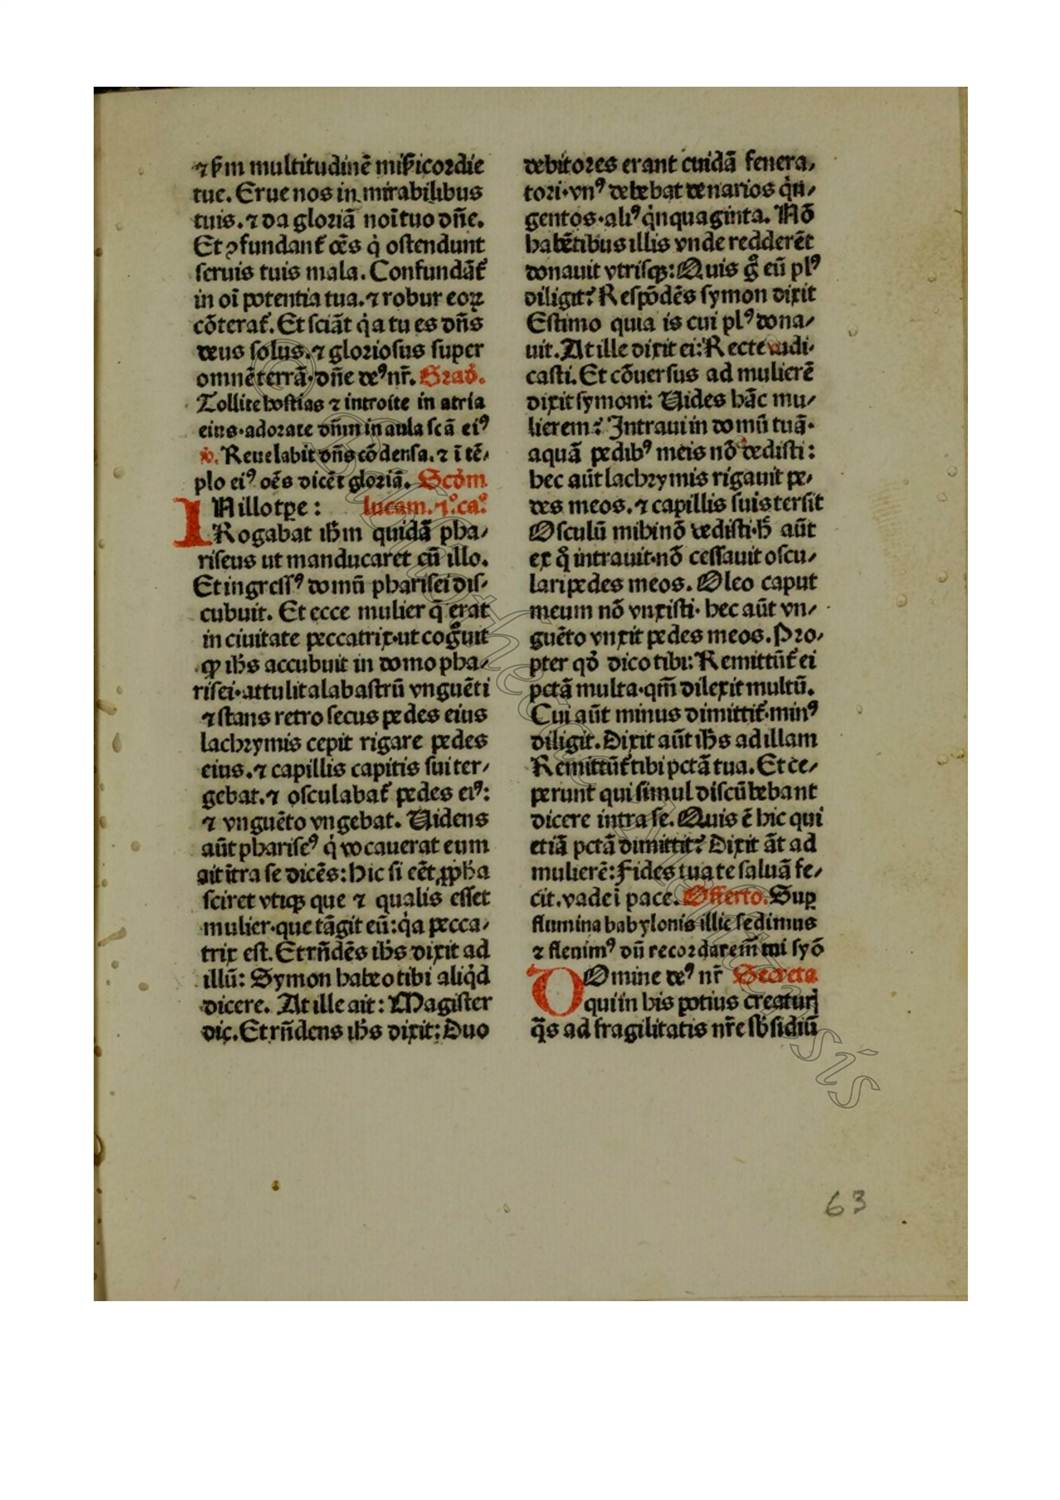 ⁊ ẜm multitudinē miẜicordie
tue. Erue nos in mirabilibus
tuis. ⁊ da gloriā noī tuo dn̄e.
Et ꝯfundant᷑ oēs q̇ ostendunt
seruis tuis mala. Confundāt᷑
in oī potentia tua. ⁊ robur eoꝝ
cōterat᷑. Et sciāt q̇a tu es dn̄s
deus solus. ⁊ gloriosus super
omnē terrā. dn̄e deꝰ nr̄. Grad̄.
Tollite hostias ⁊ introite in atria
eius. adorate dn̄m in aula scā eiꝰ
℣. Reuelabit dn̄s cōdensa. ⁊ ī tē/
plo eiꝰ oēs dicēt gloriā. Scd̄m
INillo tꝑe : lucam. ⁊.º ca.º
Rogabat ih̄m quidā pha/
riseus ut manducaret cū illo.
Et ingressꝰ domū pharisei dis/
cubuit. Et ecce mulier q̄ erat
in ciuitate peccatrix. ut cogͦuit
ꝙ ih̄s accubuit in domo pha/
risei. attulit alabastrū vnguēti
⁊ stans retro secus pedes eius
lachrymis cepit rigare pedes
eius. ⁊ capillis capitis sui ter/
gebat. ⁊ osculabat᷑ pedes eiꝰ:
⁊ vnguēto vngebat. Uidens
aūt phariseꝰ q̇ vocauerat eum
ait ītra se dicēs: Hic si eēt ꝓph̄a
sciret vtiqꝫ que ⁊ qualis esset
mulier. que tāgit eū: q̇a pecca/
trix est. Et rn̄dēs ih̄s dixit ad
illū: Symon habeo tibi aliq̇d
dicere. At ille ait: Magister
dic. Et rn̄dens ih̄s dixit: Duo
debitores erant cuidā fenera/
tori. vnꝰ debebat denarios q̇n/
gentos. aliꝰ q̇nquaginta. Nō
habētibus illis vnde redderēt
donauit vtrisqꝫ: Quis gͦ eū plꝰ
diligit? Respōdēs symon dixit
Estimo quia is cui plꝰ dona/
uit. At ille dixit ei: Recte iudi.
casti. Et cōuersus ad mulierē
dixit symoni: Uides hāc mu/
lierem? Intraui in domū tuā.
aquā pedibꝰ meis nō dedisti:
hec aūt lachrymis rigauit pe/
des meos. ⁊ capillis suis tersit
Osculū mihi nō dedisti. h̄ aūt
ex q̊ intrauit. nō cessauit oscu/
lari pedes meos. Oleo caput
meum nō vnxisti. hec aūt vn/
guēto vnxit pedes meos. Pro/
pter qd̄ dico tibi: Remittūt᷑ ei
pctā multa. qm̄ dilexit multū.
Cui aūt minus dimittit᷑. minꝰ
diligit. Dixit aūt ih̄s ad illam
Remittūt᷑ tibi pctā tua. Et ce/
perunt qui simul discūbebant
dicere intra se. Quis ē hic qui
etiā pctā dimittit? Dixit āt ad
mulierē: Fides tua te saluā fe/
cit. vade ī pace. Offerto. Suꝑ
flumina babylonis illic sedimus
⁊ fleuimꝰ dū recordarem̄ tui syō
DOmine deꝰ nr̄ Secreta
qui in his potius creaturꝭ
q̄s ad fragilitatis nr̄e sb̄sidiū
63